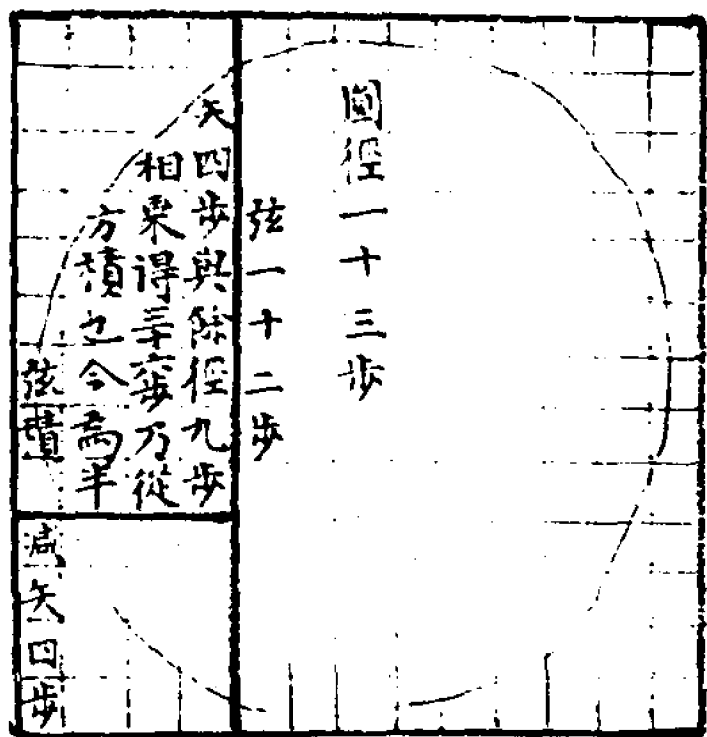 圓徑一十三步
弦一十二步
矢四步與除徑九步
相乗得三十六步乃從
方積也今為半
弦積
減矢四步